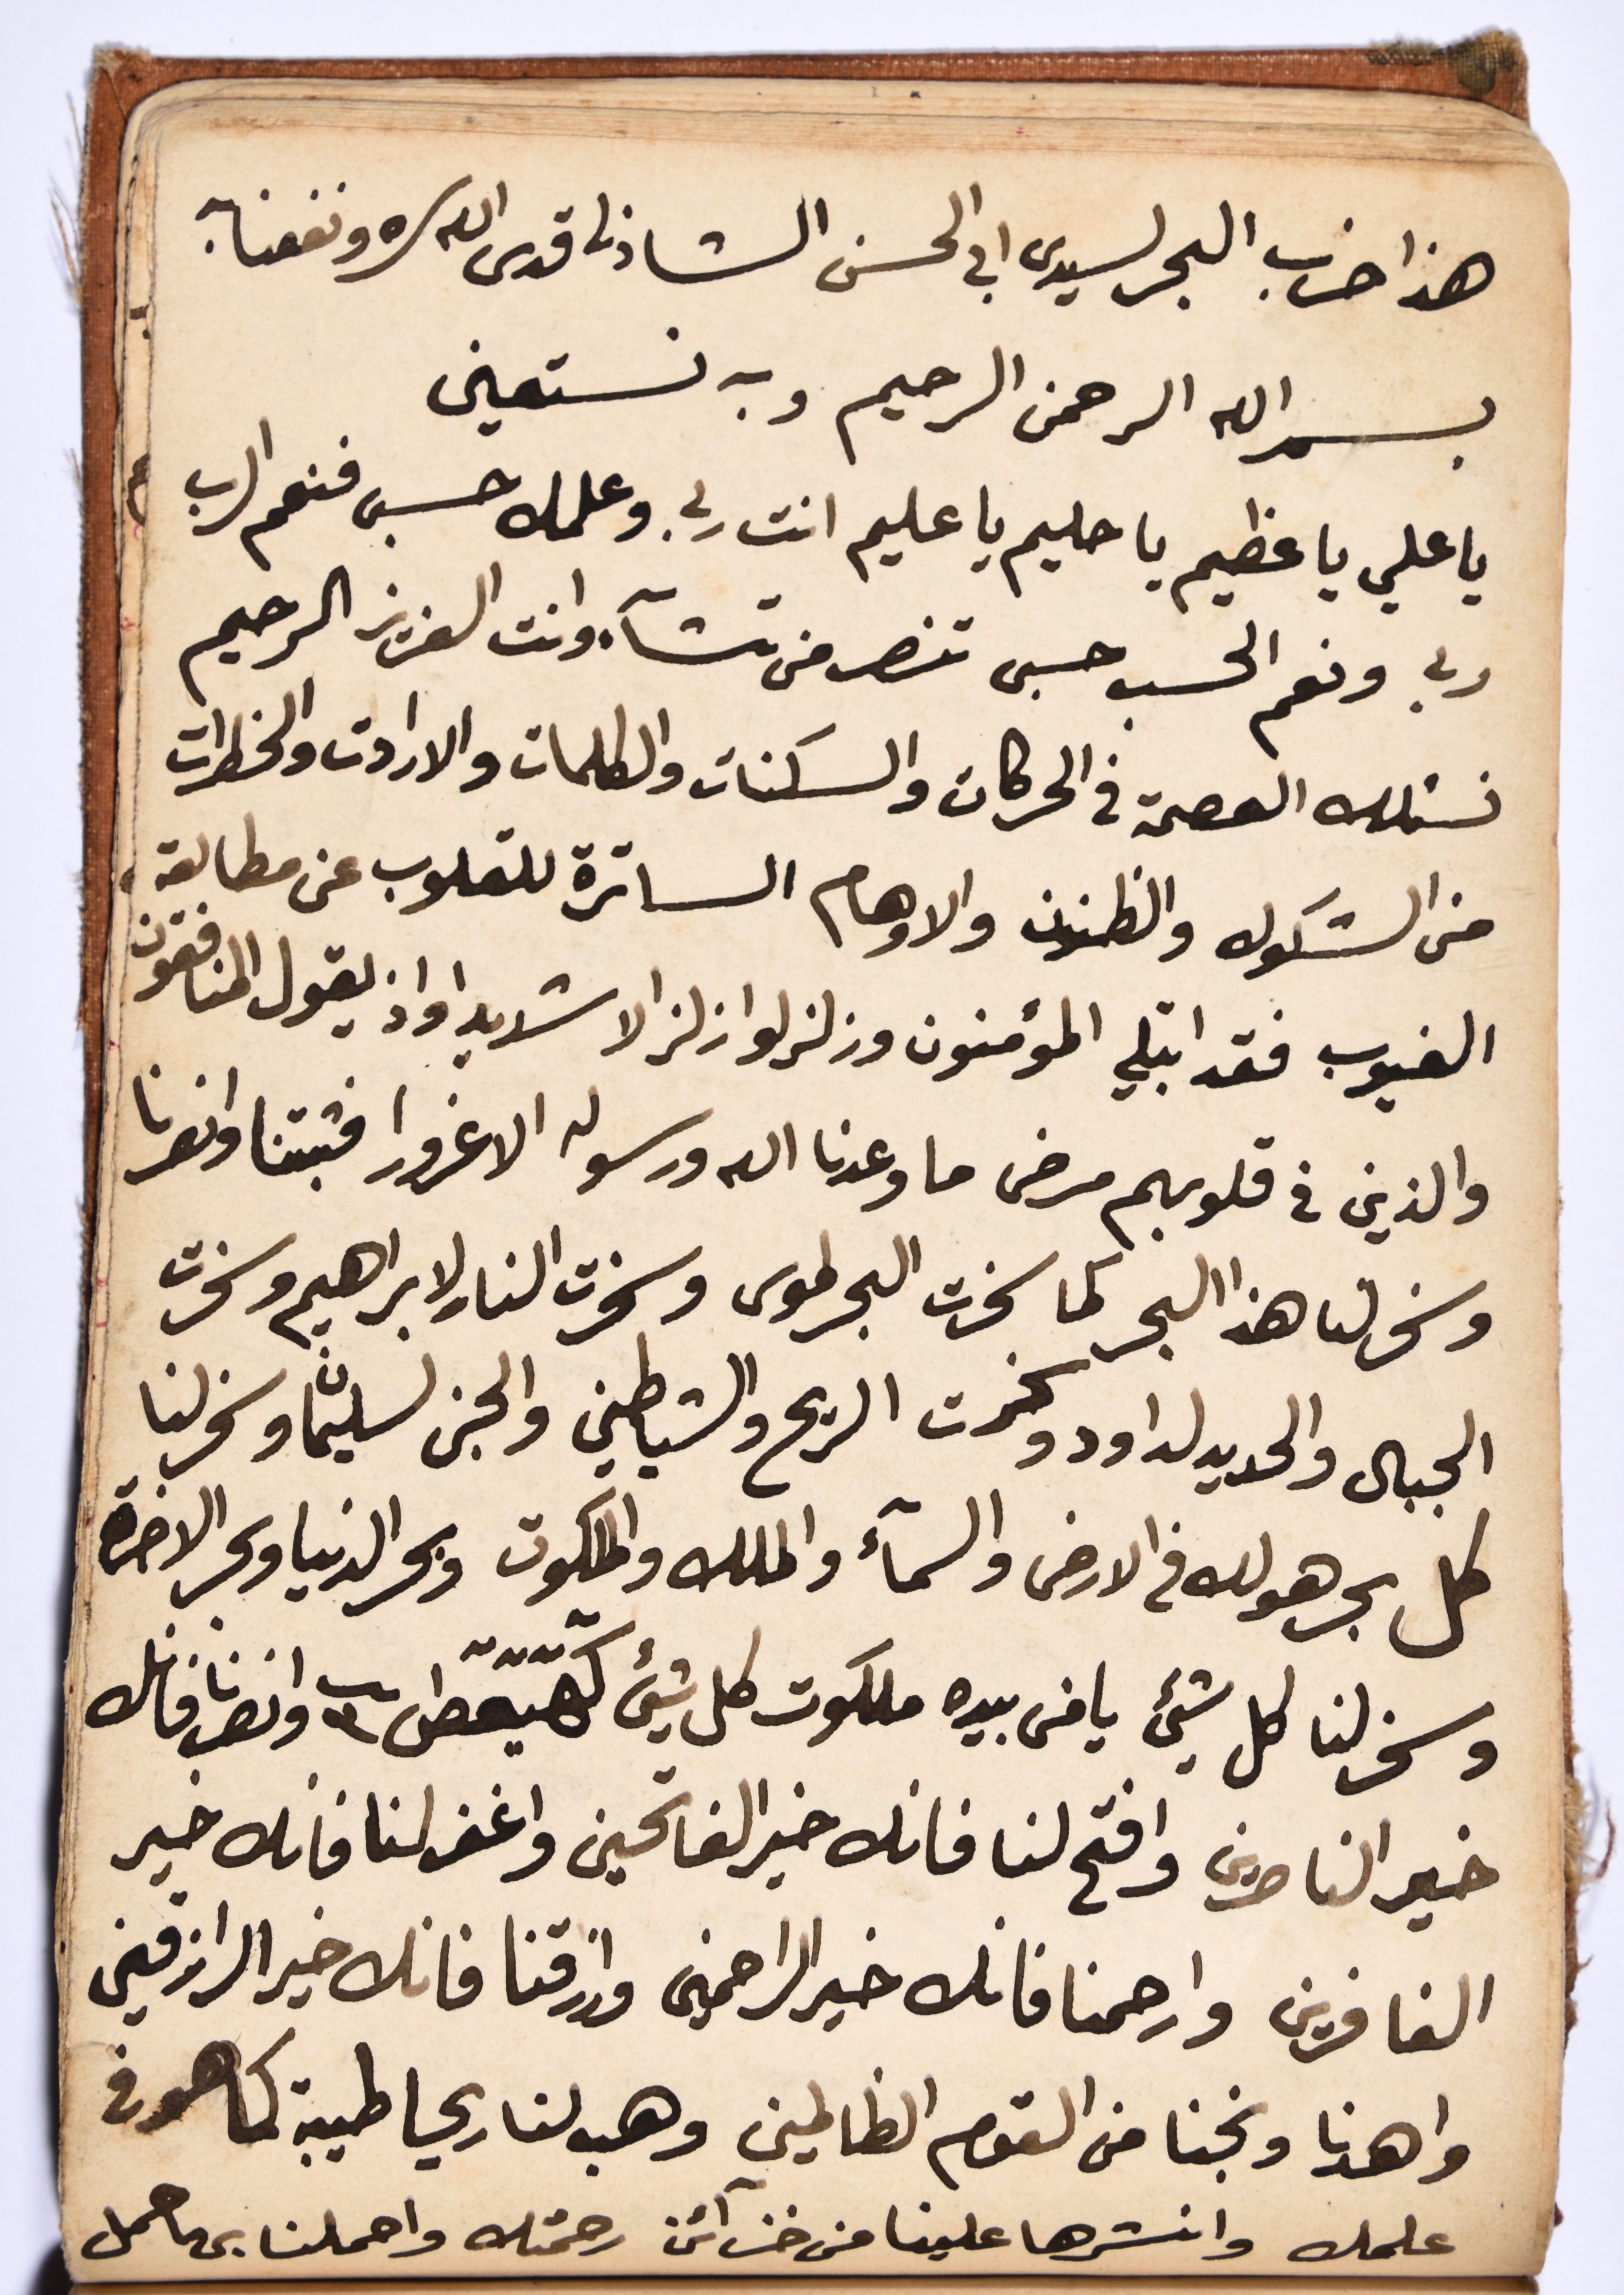 هذا حزب البحر لسيدى ابى الحسن الشاذلى قدس الله سره ونفعنا به
بسم الله الرحمن الرحيم وبه نستعين
يا علي يا عظيم يا حليم يا عليم انت ربى وعلمك حسبى فنعم الرب
ربى ونعم الحسب حسبى تنصر من تشآء وانت العزيز الرحيم
نسئلك العصمة فى الحركات والسكنات والكلمات والارادت والخطرات
من الشكوك والظنون والاوهام الساترة للقلوب عن مطالعة
الغيوب فقد ابتلي المؤمنون وزلزلوا زلزالا شديدا واذ يقول المنافقون
والذين فى قلوبهم مرض ما وعدنا الله ورسوله الا غرورا فثبتنا وانصرنا
وسخر لنا هذا البحر كما سخرت البحر لموسى وسخرت النار لابراهيم وسخرت
الجبال والحديد لداود وسخرت الريح والشياطين والجن لسليمان وسخر لنا
كل بحر هو لك فى الارض والسمآء والملك والملكوت وبحر الدنيا وبحر الاخرة
وسخر لنا كل شيئ يا من بيده ملكوت كل شيئ كهيعص ٣ وانصرنا فانك
خير الناصرين وافتح لنا فانك خير الفاتحين واغفر لنا فانك خير
الغافرين وارحمنا فانك خير الراحمين وارزقنا فانك خير الرازقين
واهدنا ونجنا من القوم الظالمين وهب لنا ريحا طيبة كما هو فى
علمك وانشرها علينا من خزآئن رحمتك واحملنا بها حمل